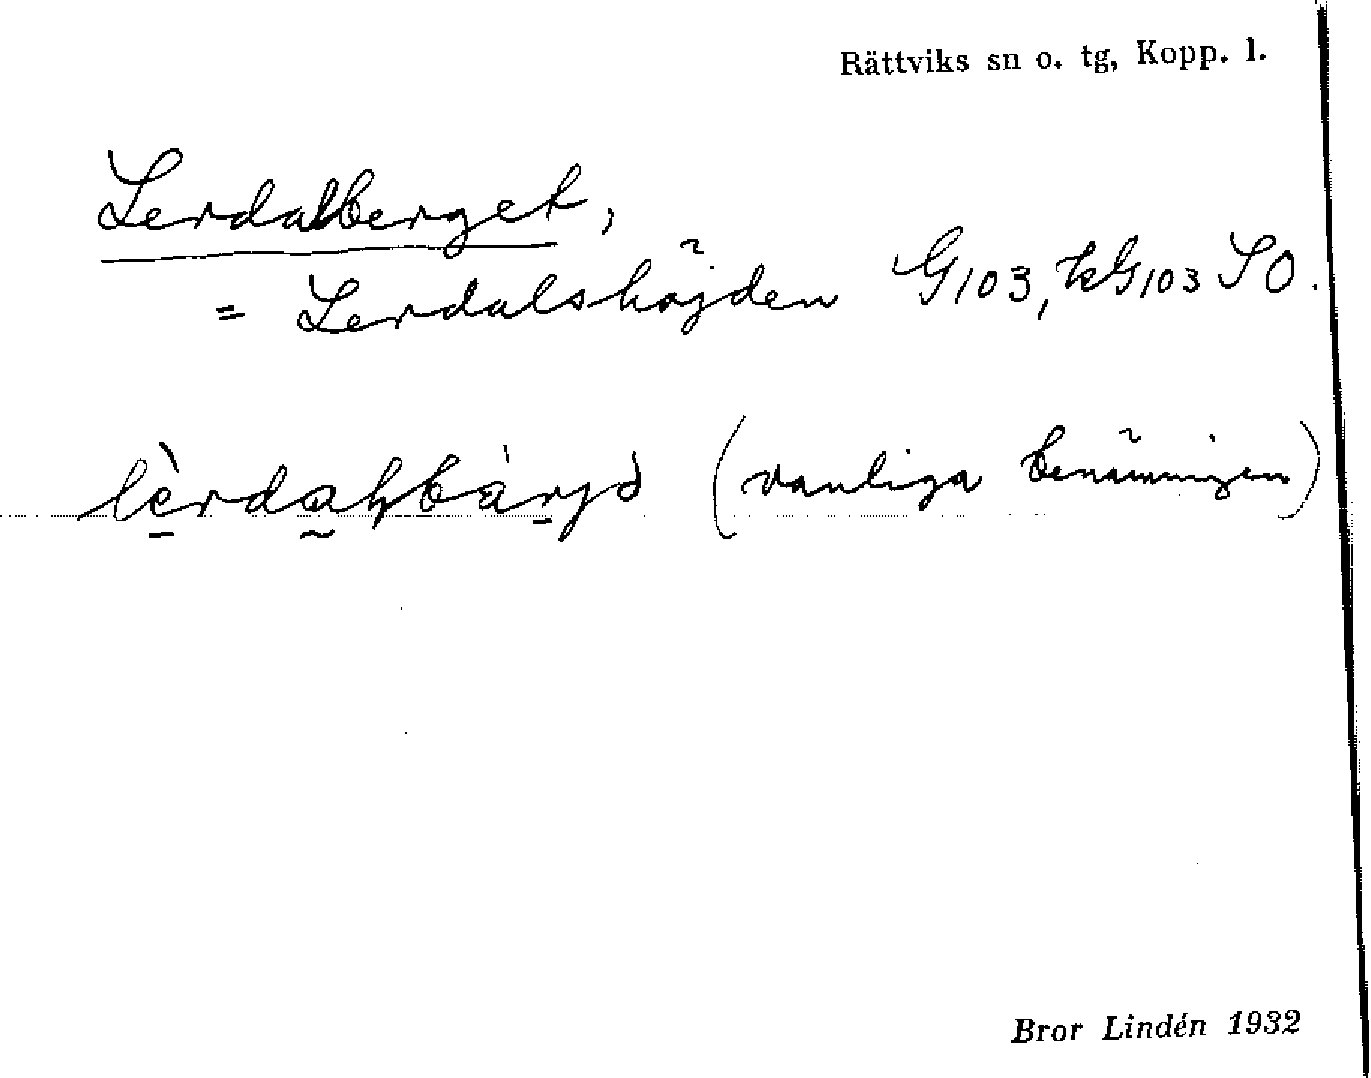 Rättviks sn o. tg, Kopp. l.
Lerdalberget,
= Lerdalshöjden G103, kG103 SO.
(vanliga benämningen)
Bror Lindén 1932